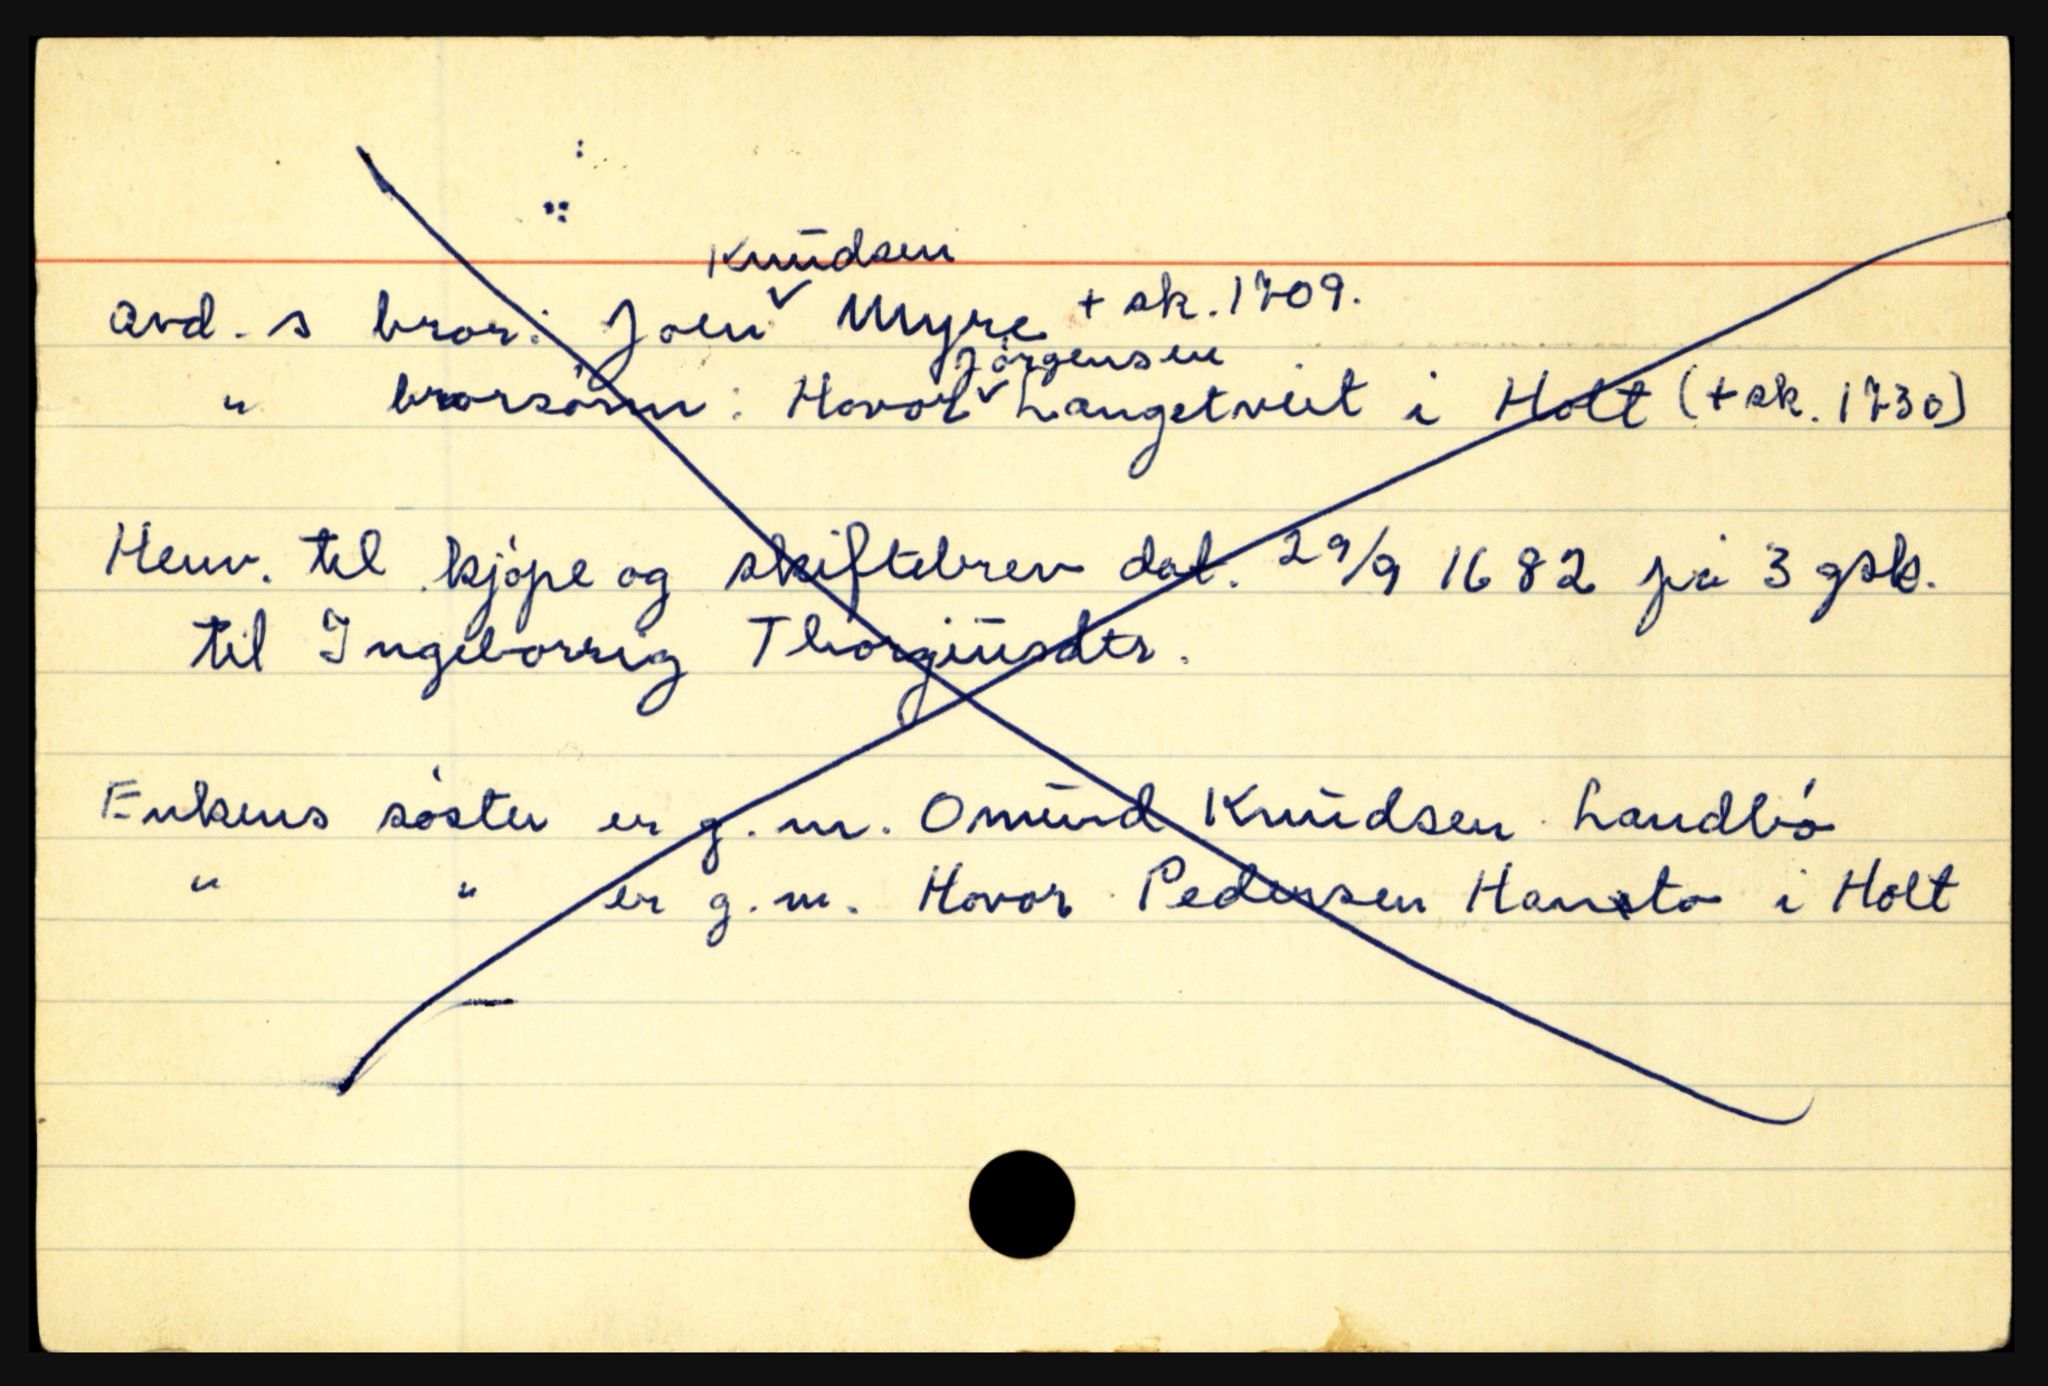 Knudsen
avd. s bror: Joen ✓ Myre + sk. 1709.
Jørgensen
" brorsønn: Hovor ✓ Langetveit i Holt (+ sk. 1730)
Henv. til kjøpe og skiftebrev dat. 29/9 1682 på 3 gsk.
til Ingeborrig Thorgiusdtr.
Enkens søster er g.m. Omund Knudsen Landbø
" " er g.m. Hovor Pedersen Hansto i Holt